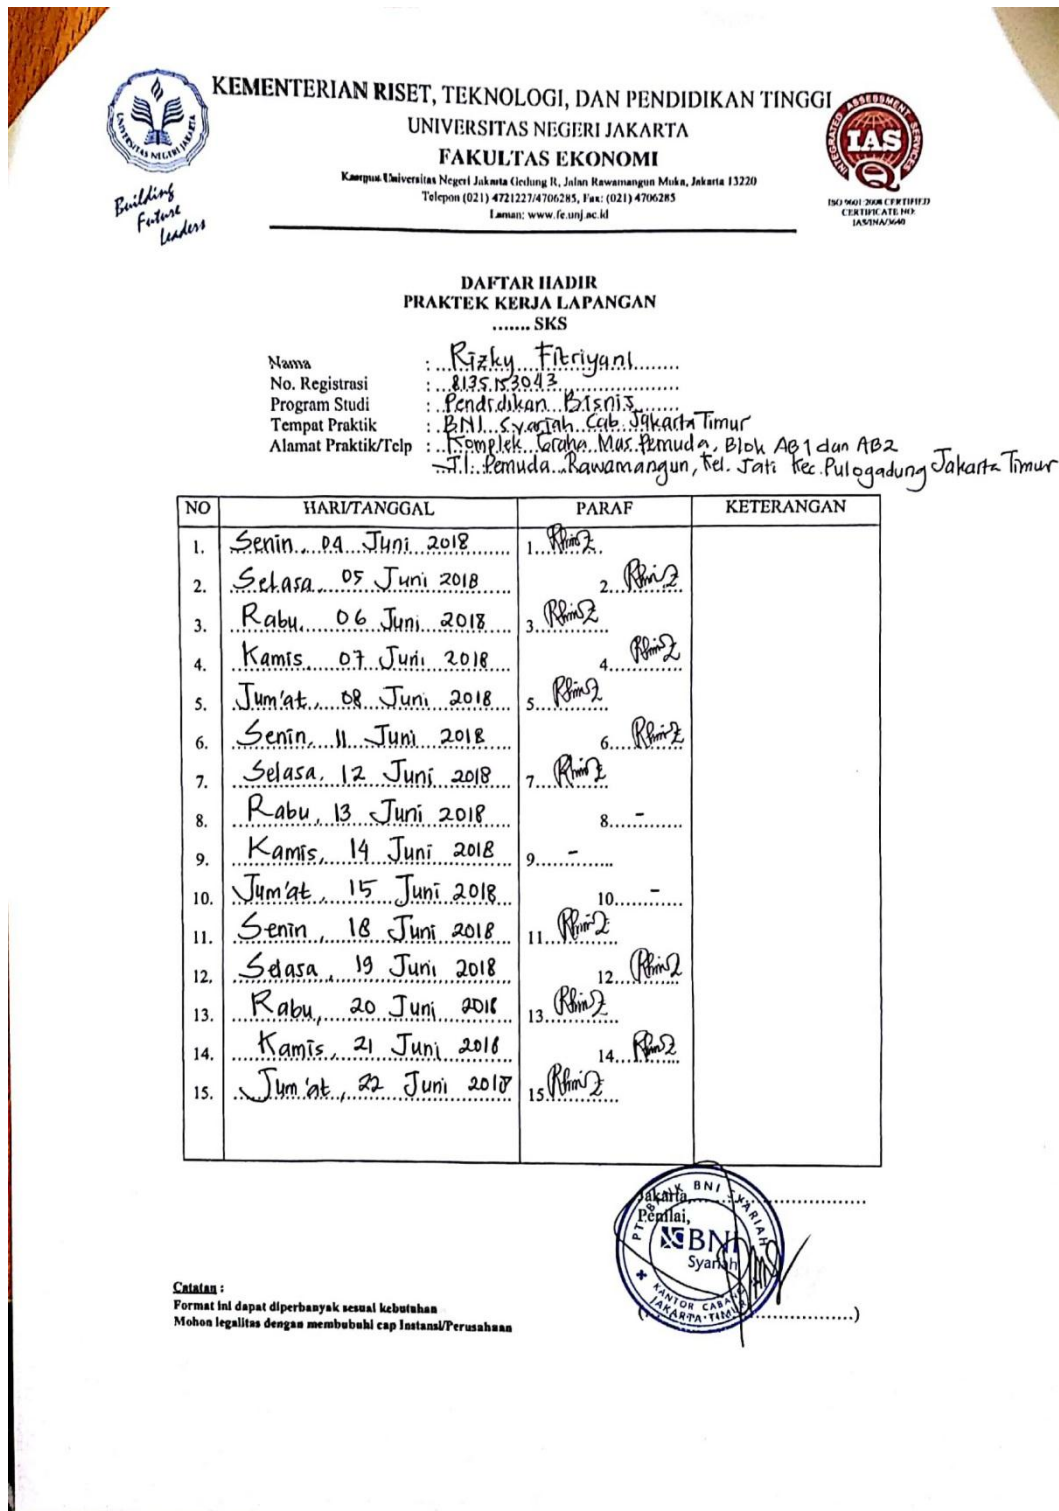 KEMENTERIAN RISET, TEKNOLOGI, DAN PENDIDIKAN TINGGI
UNIVERSITAS NEGERI JAKARTA
FAKULTAS EKONOMI
Kampus Universitas Negeri Jakarta Gedung R, Jalan Rawamangun Muka, Jakarta 13220
Telepon (021) 4721227/4706285, Fax: (021) 4706285
Laman: www.fe.unj.ac.id
UNIVERSITAS NEGERI JAKARTA
Building
Future
Leaders
INTEGRATED ASSESSMENT SERVICES
IAS
ISO 9001:2008 CERTIFIED
CERTIFICATE NO:
IAS/INA/3640
DAFTAR HADIR
PRAKTEK KERJA LAPANGAN
....... SKS
Nama : Rizky Fitriyani
No. Registrasi : 8135153043
Program Studi : Pendidikan Bisnis
Tempat Praktik : BNI Syariah Cab. Jakarta Timur
Alamat Praktik/Telp : Komplek Graha Mas Pemuda, Blok AB1 dan AB2
Jl. Pemuda Rawamangun, Kel. Jati Kec. Pulogadung Jakarta Timur
NO HARI/TANGGAL PARAF KETERANGAN
1. Senin, 04 Juni 2018 1.
2. Selasa, 05 Juni 2018 2.
3. Rabu, 06 Juni 2018 3.
4. Kamis, 07 Juni 2018 4.
5. Jum'at, 08 Juni 2018 5.
6. Senin, 11 Juni 2018 6.
7. Selasa, 12 Juni 2018 7.
8. Rabu, 13 Juni 2018 8. -
9. Kamis, 14 Juni 2018 9. -
10. Jum'at, 15 Juni 2018 10. -
11. Senin, 18 Juni 2018 11.
12. Selasa, 19 Juni 2018 12.
13. Rabu, 20 Juni 2018 13.
14. Kamis, 21 Juni 2018 14.
15. Jum'at, 22 Juni 2018 15.
Jakarta,
Penilai,
PT. BANK BNI SYARIAH
BNI
Syariah
KANTOR CABANG
JAKARTA TIMUR
(..................)
Catatan :
Format ini dapat diperbanyak sesuai kebutuhan
Mohon legalitas dengan membubuhi cap Instansi/Perusahaan